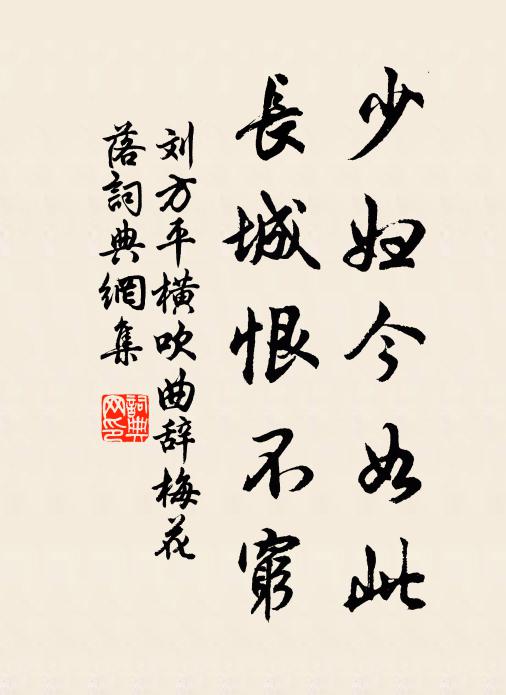 少妇今如此
長城恨不窮
刘方平横吹曲辞梅花
落詞典網集
詞典网印